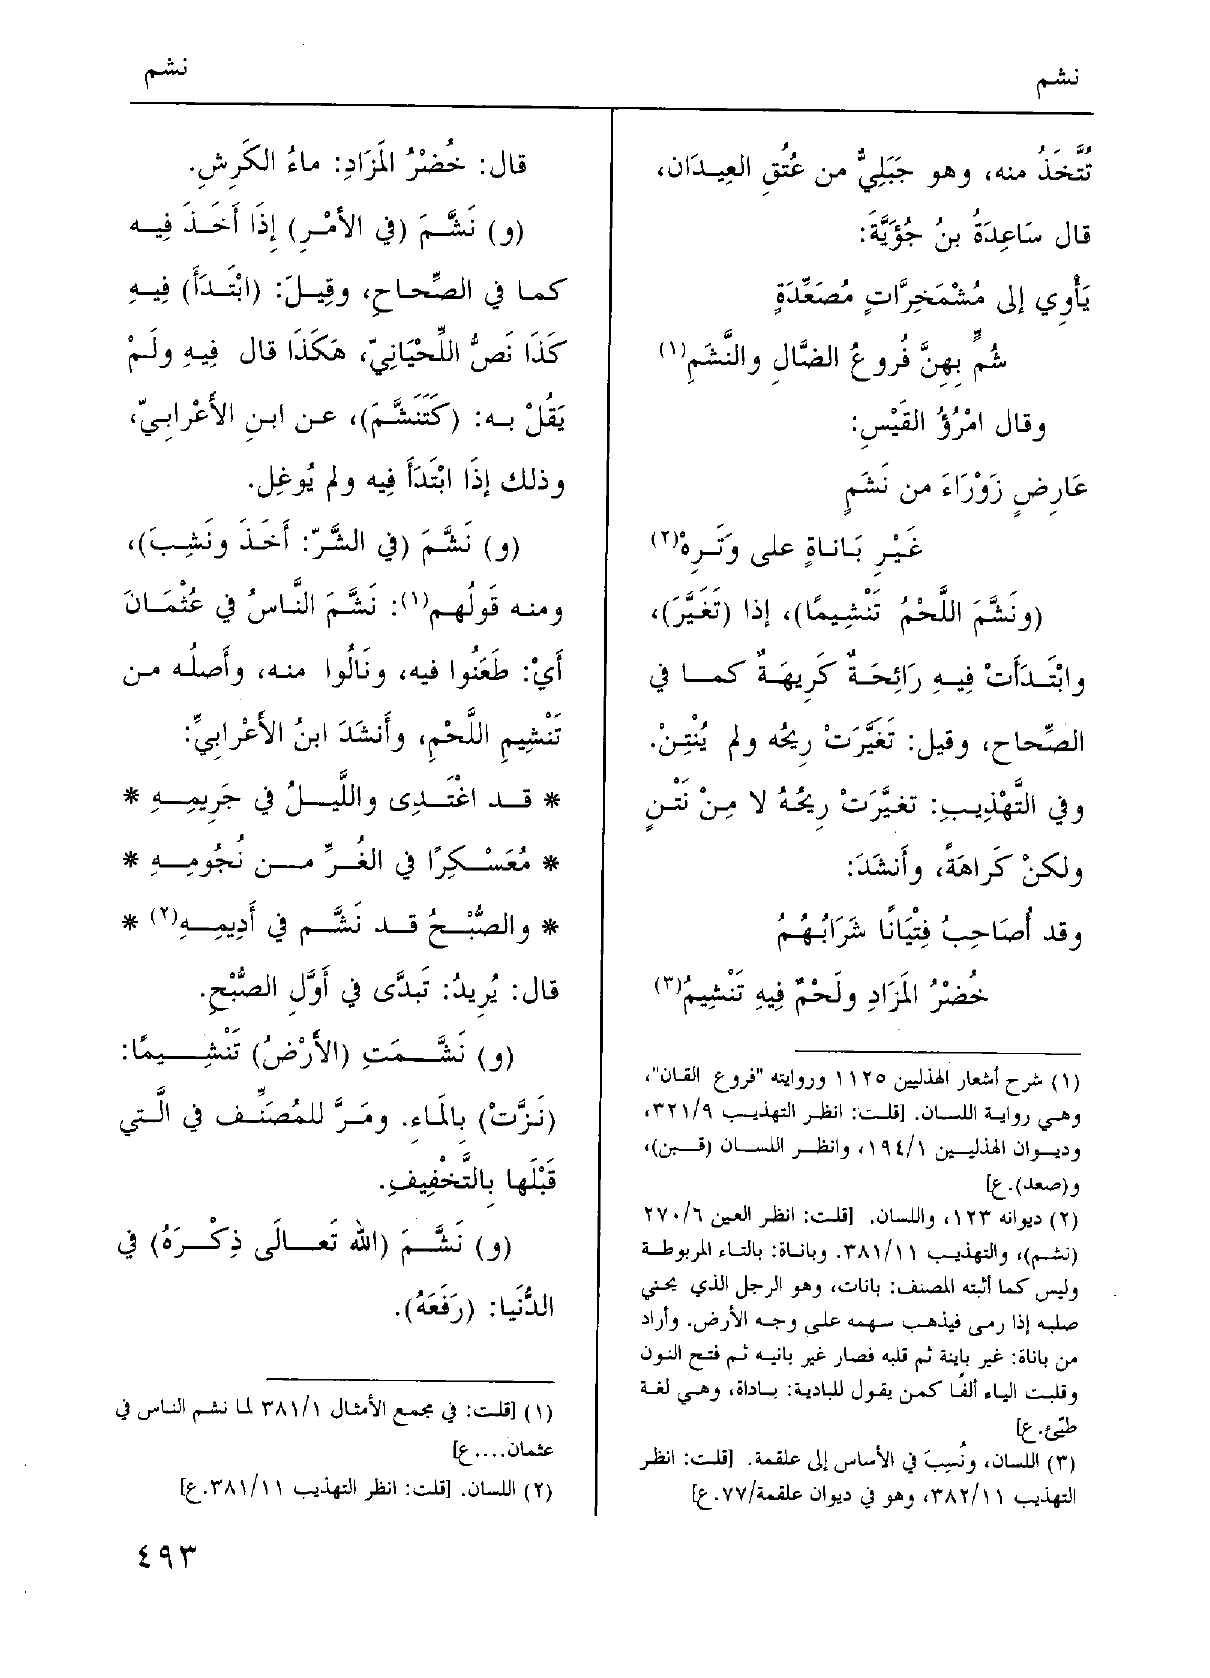 نشم
نشم
تُتَّخَذُ منه، وهو جَبَلِيٌّ من عُتُقِ العِيدَان،
قال سَاعِدَةُ بنُ جُؤَيَّةَ:
يَأْوِي إلى مُشْمَخِرَّاتٍ مُصَعِّدَةٍ
شُمٍّ بِهِنَّ فُروعُ الضَّالِ والنَّشَمِ(١)
وقال امْرُؤُ القَيْسِ:
عَارِضٍ زَوْرَاءَ من نَشَمٍ
غَيْرِ بَانَاةٍ على وَتَرِهْ(٢)
(ونَشَّمَ اللَّحْمُ تَنْشِيمًا)، إذا (تَغَيَّرَ)،
وابْتَدَأَتْ فِيهِ رَائِحَةٌ كَرِيهَةٌ كما في
الصِّحاح، وقيل: تَغَيَّرَتْ رِيحُه ولم يُنْتِنْ.
وفي التَّهْذِيبِ: تَغيَّرَتْ رِيحُهُ لا مِنْ نَتْنٍ
ولكنْ كَراهَةً، وأَنشَدَ:
وقد أُصَاحِبُ فِتْيَانًا شَرَابُهُمُ
خُضْرُ المَزَادِ ولَحْمٌ فِيهِ تَنْشِيمُ(٣)
(١) شرح أشعار الهذليين ١١٢٥ وروايته "فروع القان"،
وهي رواية اللسان. [قلت: انظر التهذيب ٣٢١/٩،
وديوان الهذليين ١٩٤/١، وانظر اللسان (قين)،
و(صعد). ع]
(٢) ديوانه ١٢٣، واللسان. [قلت: انظر العين ٢٧٠/٦
(نشم)، والتهذيب ٣٨١/١١. وباناة: بالتاء المربوطة
وليس كما أثبته المصنف: بانات، وهو الرجل الذي يحني
صلبه إذا رمى فيذهب سهمه على وجه الأرض. وأراد
من باناة: غير باينة ثم قلبه فصار غير بانيه ثم فتح النون
وقلبت الياء ألفًا كمن يقول للبادية: باداة، وهي لغة
طيّئ. ع]
(٣) اللسان، ونُسِبَ في الأساس إلى علقمة. [قلت: انظر
التهذيب ٣٨٢/١١، وهو في ديوان علقمة/٧٧. ع]
قال: خُضْرُ المَزَادِ: ماءُ الكَرِشِ.
(و) نَشَّمَ (في الأَمْرِ) إِذَا أَخَذَ فِيه
كما في الصِّحاح، وقِيلَ: (ابْتَدَأَ) فِيهِ
كَذَا نَصُّ اللِّحْيَانِيّ، هَكَذَا قال فِيهِ ولَمْ
يَقُلْ به: (كَتَنَشَّمَ)، عن ابنِ الأَعْرابيّ،
وذلك إذَا ابْتَدَأَ فِيه ولم يُوغِل.
(و) نَشَّمَ (في الشَّرِّ: أَخَذَ ونَشِبَ)،
ومنه قَولُهم(١): نَشَّمَ النَّاسُ في عُثْمَانَ
أَيْ: طَعَنُوا فيه، ونَالُوا منه، وأَصلُه من
تَنْشِيمِ اللَّحْمِ، وأَنشَدَ ابنُ الأَعْرابيِّ:
* قد اغْتَدِى واللَّيلُ في جَرِيمِهِ *
* مُعَسْكِرًا في الغُرِّ من نُجُومِهِ *
* والصُّبْحُ قد نَشَّم في أَدِيمِهِ(٢) *
قال: يُرِيدُ: تَبدَّى في أَوَّلِ الصُّبْحِ.
(و) نَشَّمَتِ (الأَرْضُ) تَنْشِيمًا:
(نَزَّتْ) بالمَاء. ومَرَّ لِلمُصَنِّف في الَّتي
قَبْلَها بالتَّخْفِيفِ.
(و) نَشَّمَ (الله تَعالَى ذِكْرَهُ) في
الدُّنيا: (رَفَعَهُ).
(١) [قلت: في مجمع الأمثال ٣٨١/١ لما نشم الناس في
عثمان.... ع]
(٢) اللسان. [قلت: انظر التهذيب ٣٨١/١١. ع]
٤٩٣